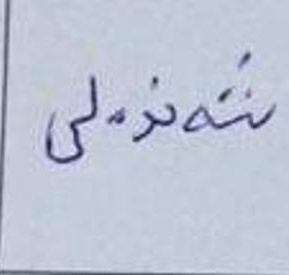 شەنزەلی